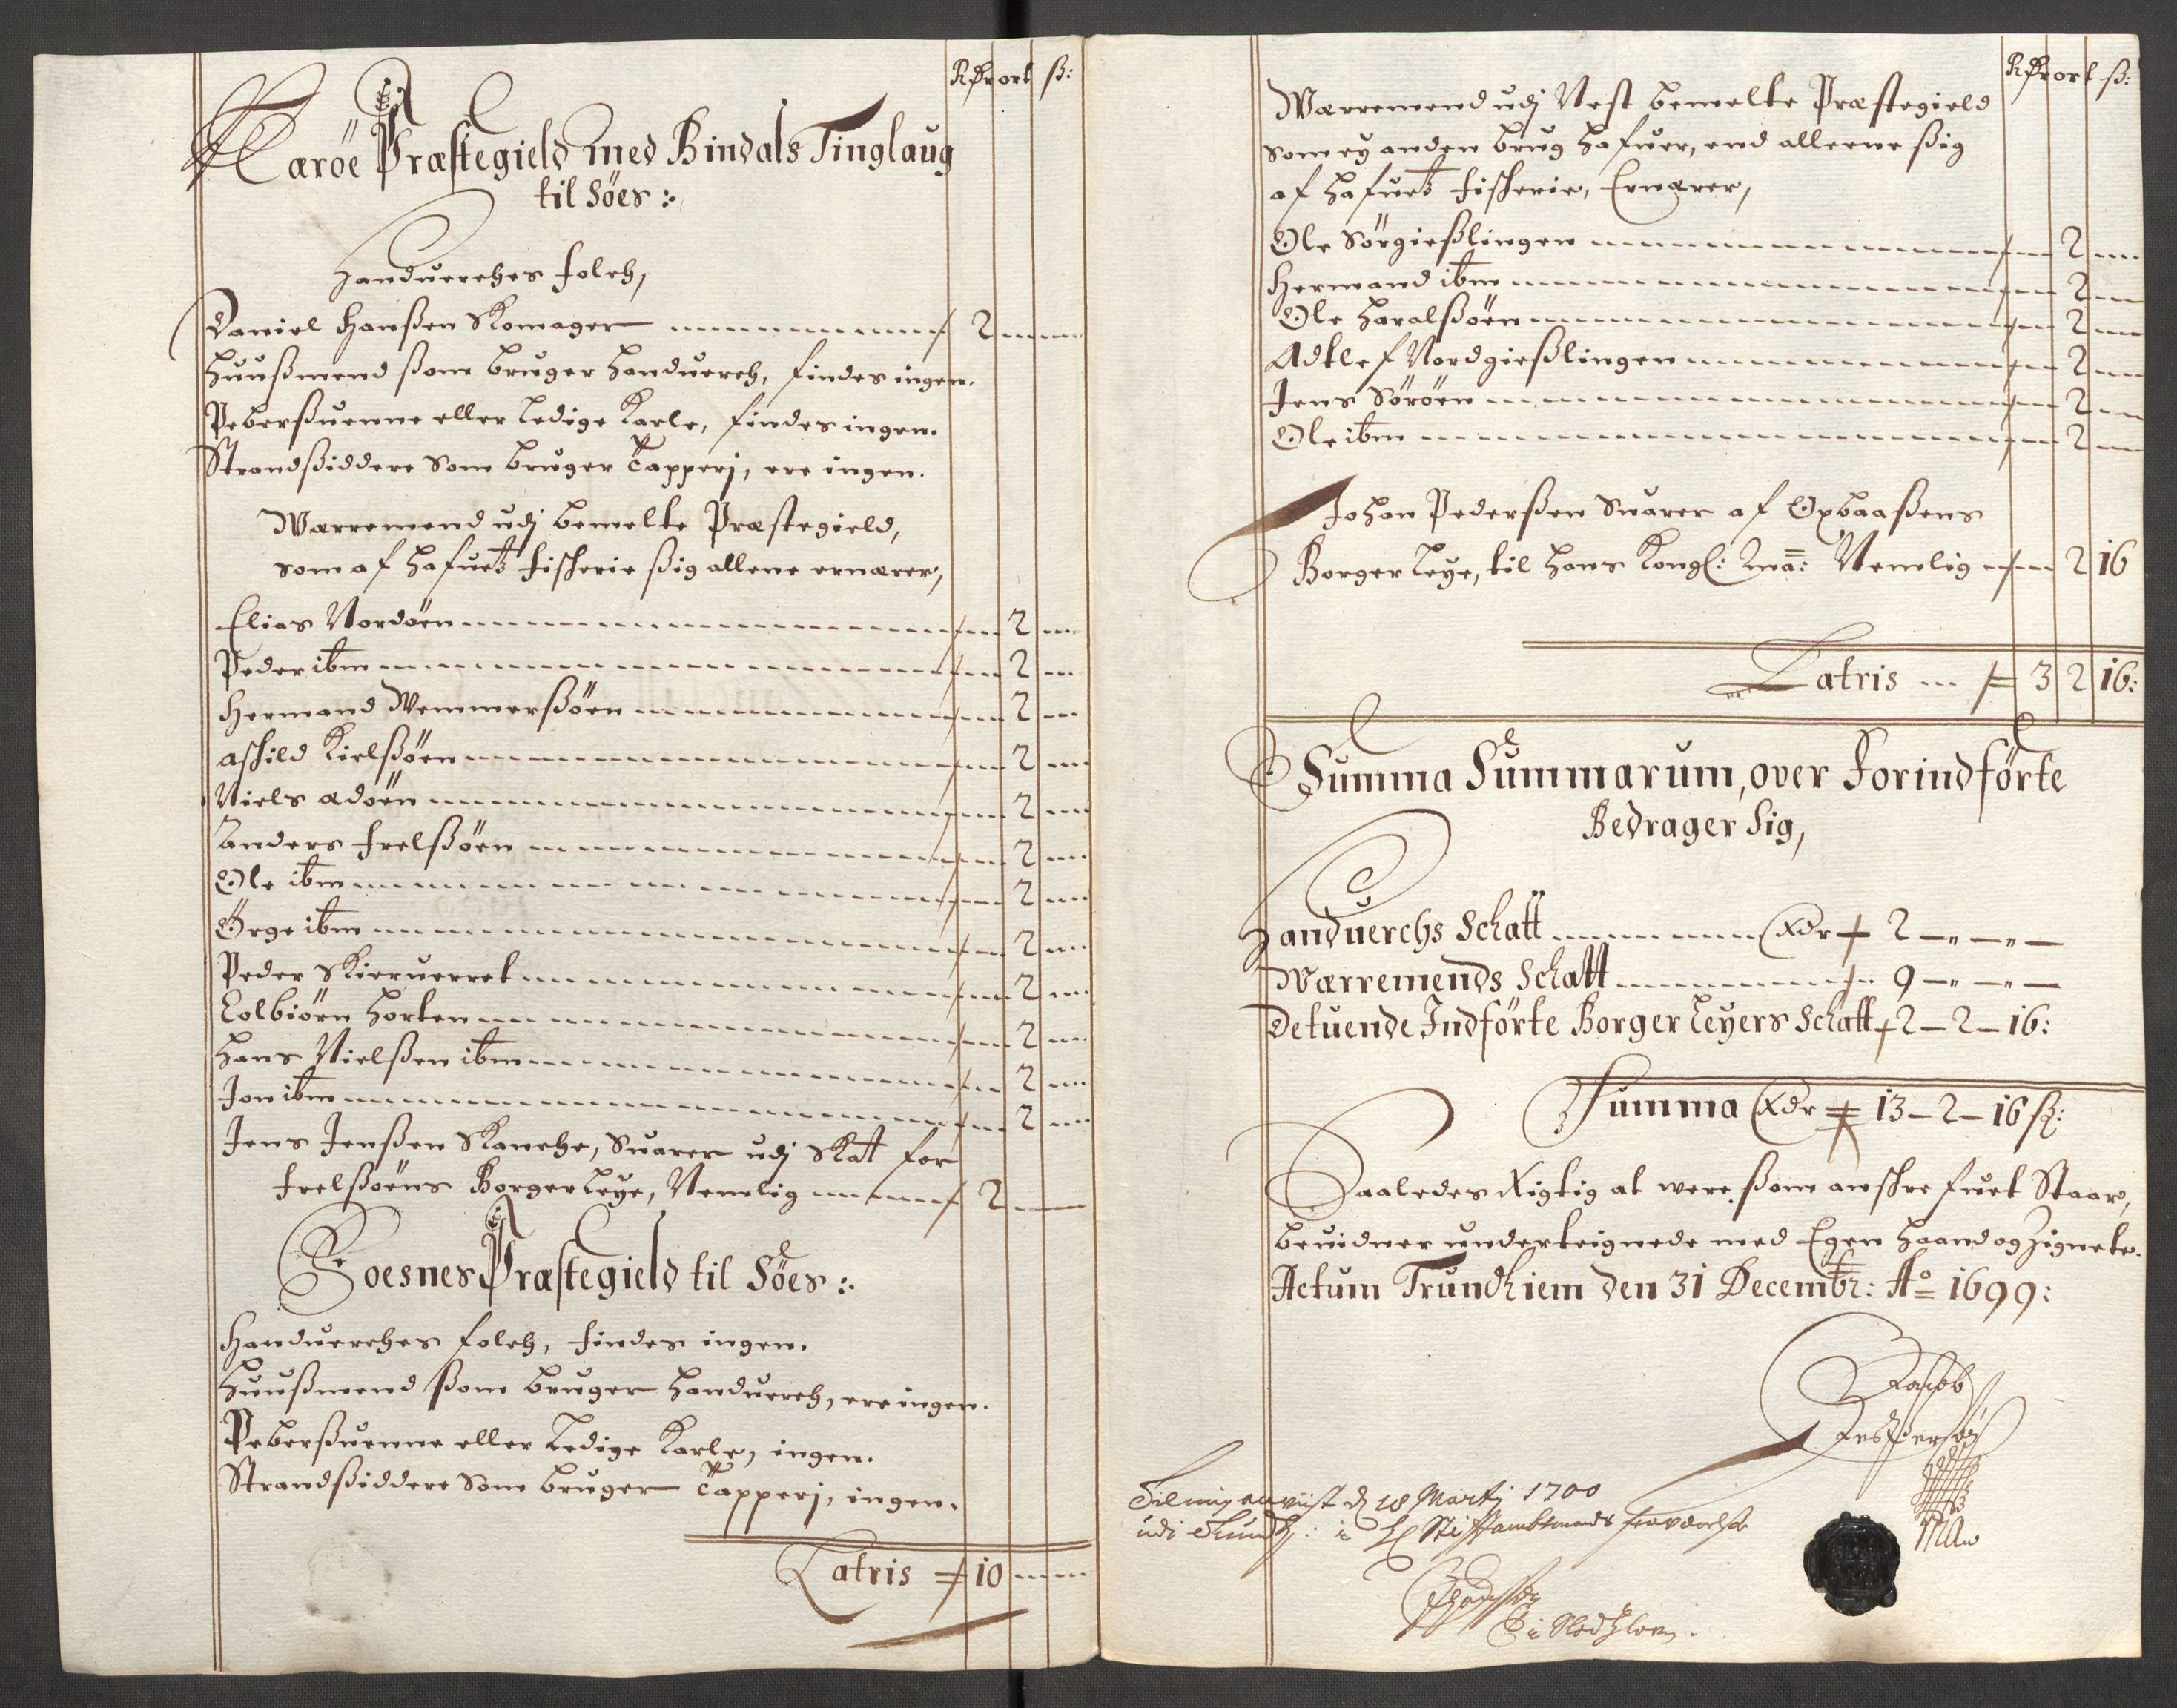 Rdr ort ß:
Næröe Præstegield med Bindals Tinglaug
til Söes :,
Handuerches folch,
Daniel Hanßen Skomager 2
Huußmend ßom bruger handuerch, findes ingen.
Peberßuenne eller Ledige Karle, findes ingen.
Strandßiddere Som bruger Tapperj, ere ingen.
Wærremend udj bemelte Præstegield,
som af hafuetz fischerie ßig allene ernærer,
Elias Nordöen 2
Peder ibm 2
Hermand Wemmerßöen 2
aschild Kielßöen 2
Niels ædöen 2
Anders Frelßöen 2
Ole ibm 2
Örge ibm 2
Peder Skieruerret 2
Tolbiörn Horten 2
Hans Nielßen ibm 2
Jon ibm 2
Jens Jenßen Kanche, Suarer udj Skatt for
Frelßöens Borger Leye, Nemlig 2
Foesnes Præstegield til Söes :.
Handuerches folch, findes ingen.
Huußmend ßom bruger handuerch, ere ingen.
Peberßuenne eller Ledige Karle, ingen.
Strandßiddere Som bruger Tapperj, ingen.
Latris 10
Rdr ort ß:
Wærremend udj Nest bemelte Præstegield
som ey anden brug hafuer, end alleene ßig
af hafuetz fischerie, Ernærer,
Ole Sörgießlingen 2
Hermand ibm 2
Ole Haralßöen 2
Adtlef Nordgießlingen 2
Jens Söröen 2
Ole ibm 2
Johan Pederßen Suarer af Oxbaaßens
Borger Leye, til Hans Kongl: Ma: Nemlig 2 16
Latris 3 2 16:
Summa Summarum, over Forindförte
Bedrager Sig,
Handuerchs Schatt Rdr 2 - " - " -
Wærremends Schatt 9 - " - " -
Detuende Indförte Borger Leyers Schatt 2 - 2 - 16:
Summa Rdr 13 - 2 - 16 ß:
Saaledes Rigtig at were ßom anschrefuet Staar,
beuidner underteignede med Egen haand og Zignete.
Actum Trundhiem den 31 Decembr: Ao 1699:
Jacob
Jesperßen
Til mig anviist d 18 Martj 1700
udi Trundh: i Hr Stiftamtmands fraværelse